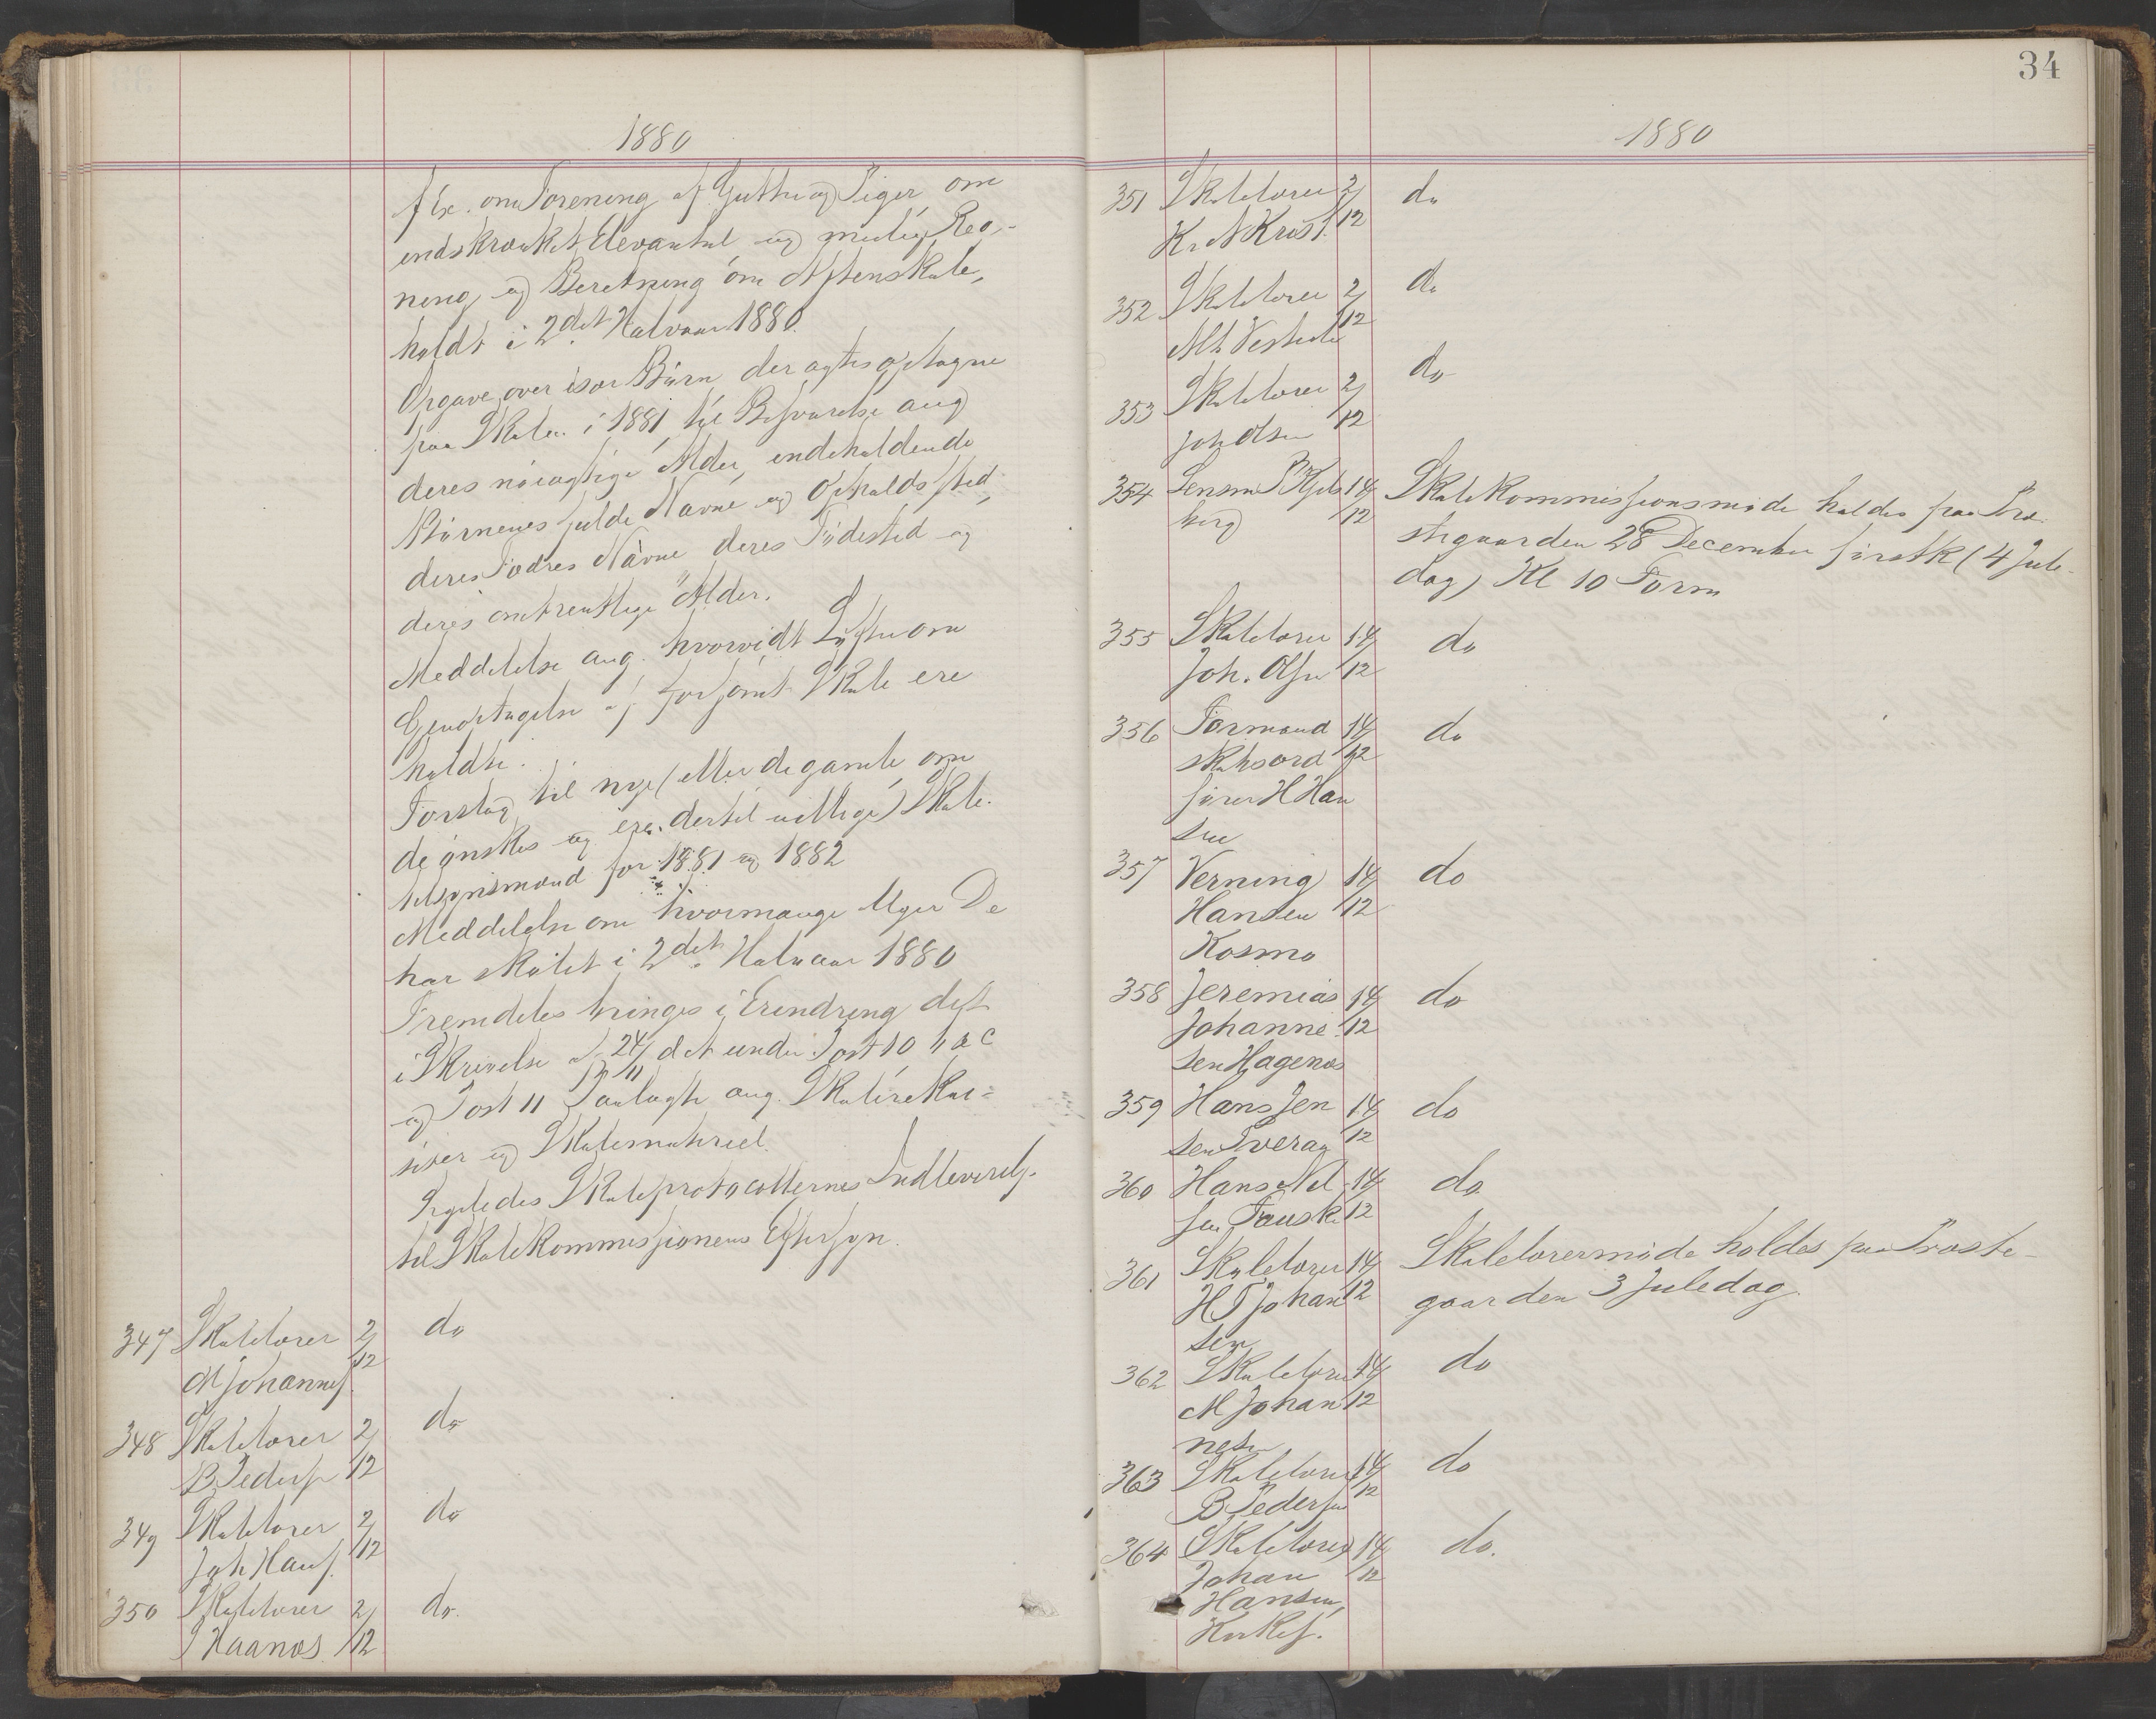 1880
f Ex. om Forening af Gutter og Piger, om
indskrænket Elevantal og mulig Reg-
ning og Beretning om Aftenskole,
holdt i 2det Halvaar 1880.
Opgave over de Børn der agtes optagne
paa Skolen i 1881 til Besvarelse ang
deres nøiagtige Alder, indeholdende
Børnenes fulde Navne og Opholdssted,
deres Fædres Navne deres Fødested og
deres omtrentlige Alder.
Meddelelse ang. hvorvidt Løfter om
Gjenoptagelse af forsømt Skole ere
holdte.
Forslag til nye (eller de gamle om
de ønskes og ere dertil villige) Skole-
tilsynsmænd for 1881 og 1882
Meddelelse om hvormange Uger De
har skolet i 2det Halvaar 1880
Fremdeles bringes i Erindring det
i Skrivelse af 24/11 d A under Post 10 h & c
og Post 11 Paalagte ang. Skolerekvi=
siter og Skolemateriel.
Ligeledes Skoleprotocollernes Indlevering
til Skolekommissionens Eftersyn.
347 Skolelærer 2/12 do
M Johannes.
348 Skolelærer 2/12 do
B Peders
349 Skolelærer 2/12 do
Joh Hans.
350 Skolelærer 2/12 do.
Haanæs
34
1880
351 Skolelærer 2/12 do
Kr A Krist.
352 Skolelærer 2/12 do
353 Skolelærer 2/12 do
Joh Olsen
354 Lensm 14/12 Skolekommissionsmøde holdes paa Præ-
berg stegaarden 28 December førstk (4 Jule-
dag) Kl 10 Form
355 Skolelærer 14/12 do
Joh. Olsen
356 Formand 14/12 do
skabsord
fører H Han
sen
357 Verning 14/12 do
Hansen
Kosmo
358 Jeremias 14/12 do
Johanne
sen Hagenæs
359 Hans Jen 14/12 do
sen Tveraa
360 Hans Nil 14/12 do
sen Fauske
361 Skolelærer 14/12 Skolelærermøde holdes paa Præste-
H J Johan gaarden 3 Juledag.
sen
362 Skolelærer 14/12 do
M Johan
nesen
363 Skolelærer 14/12 do
B Pedersen
364 Skolelærer 14/12 do.
Johan
Hansen,